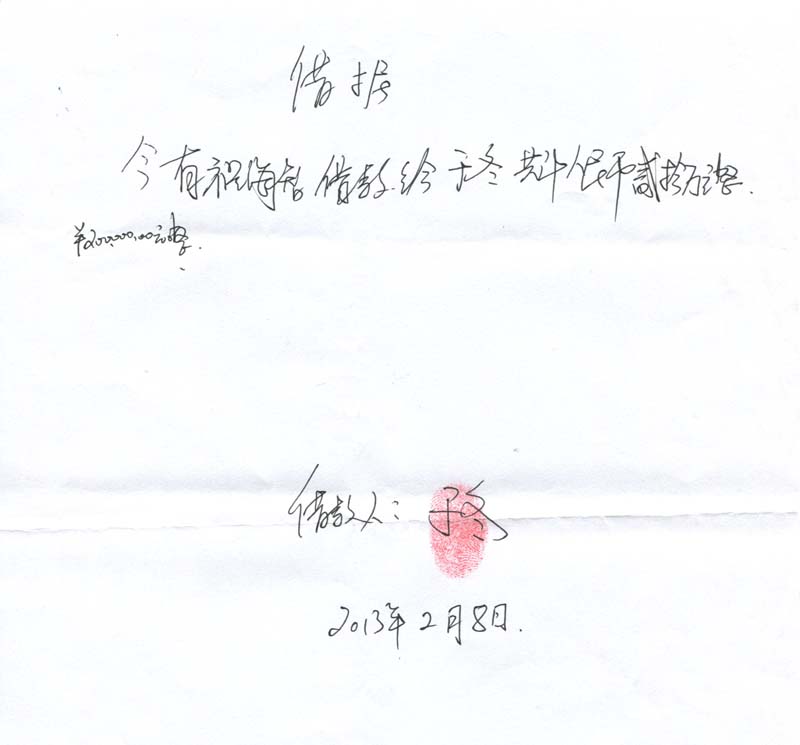 借据
今有祝海智借款给于冬共计人民币贰拾万元整.
￥200,000.00元整.
借款人：于冬
2013年2月8日.